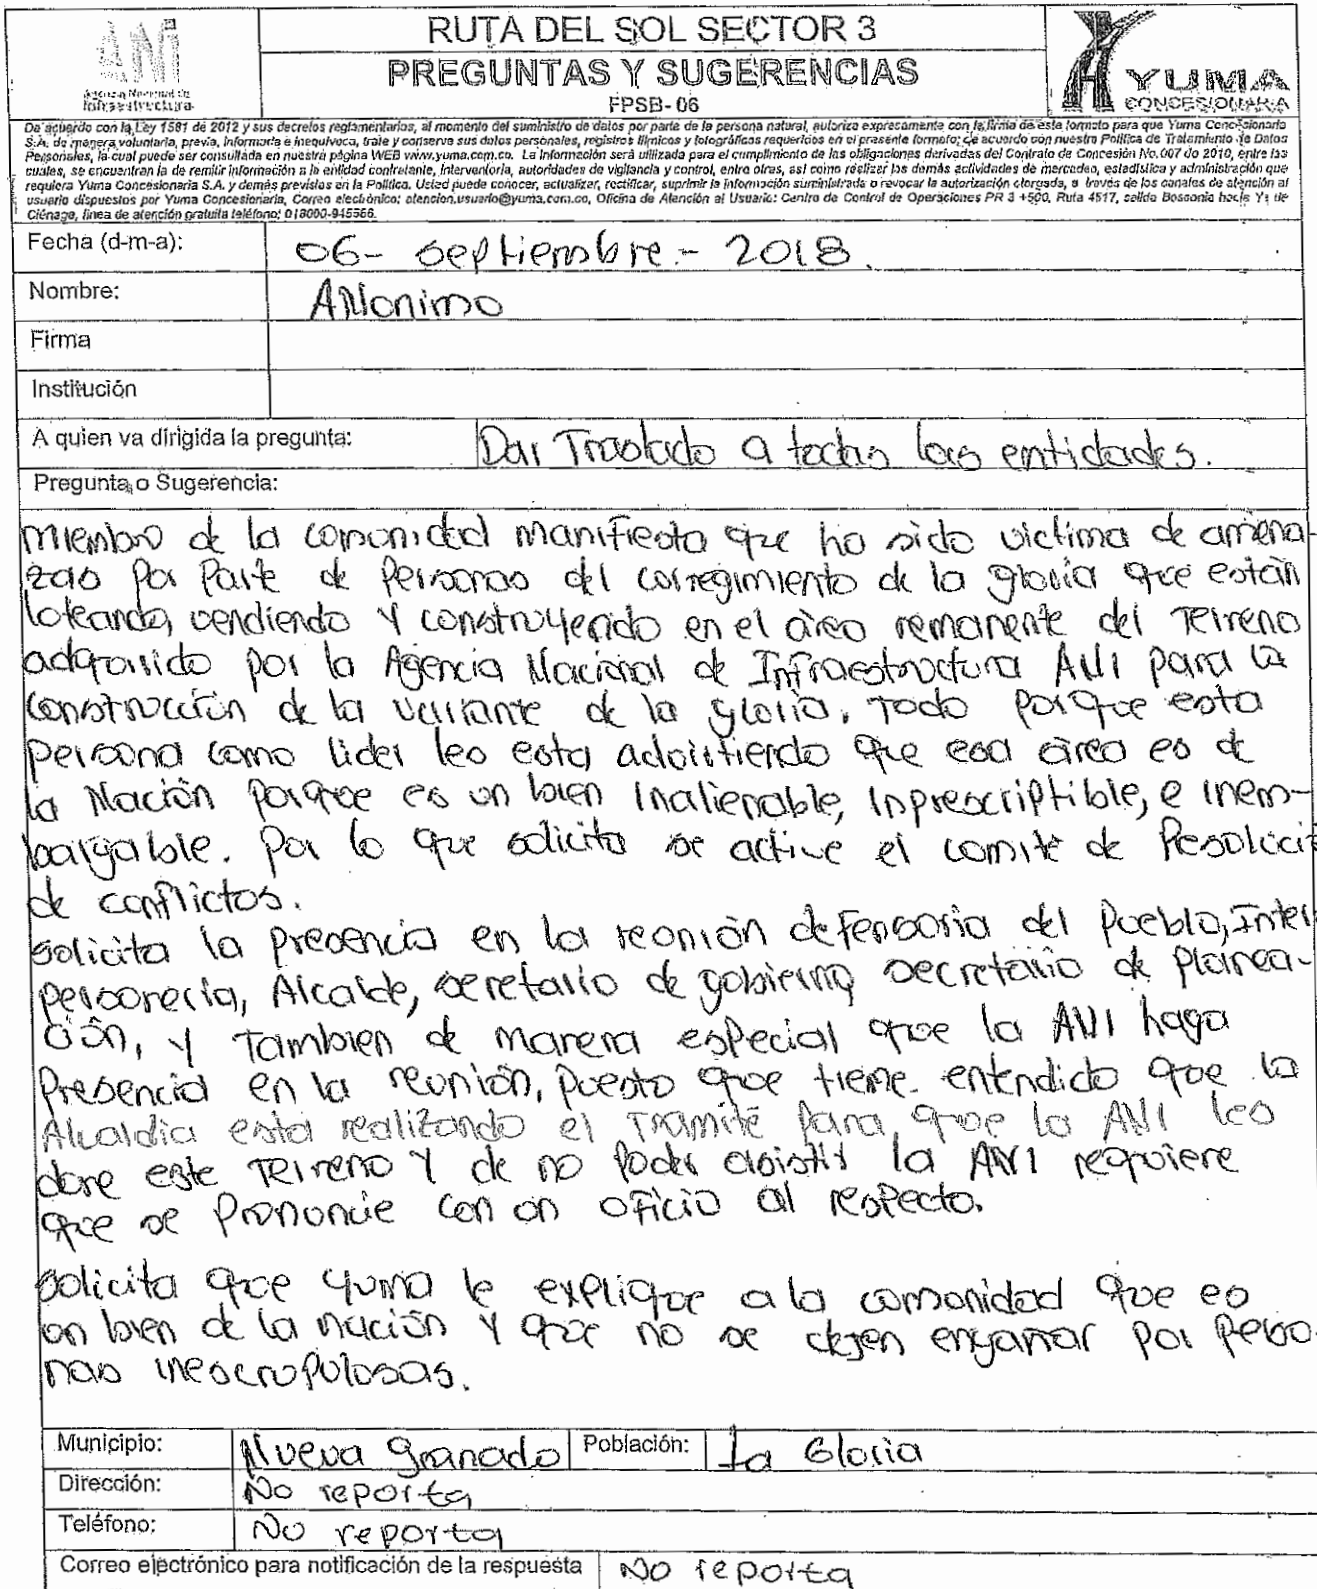 ANI
Agencia Nacional de
Infraestructura
RUTA DEL SOL SECTOR 3
PREGUNTAS Y SUGERENCIAS
FPSB- 06
YUMA
CONCESIONARIA
De acuerdo con la Ley 1581 de 2012 y sus decretos reglamentarios, al momento del suministro de datos por parte de la persona natural, autoriza expresamente con la firma de este formato para que Yuma Concesionaria
S.A. de manera voluntaria, previa, informada e inequívoca, trate y conserve sus datos personales, registros fílmicos y fotográficos requeridos en el presente formato; de acuerdo con nuestra Política de Tratamiento de Datos
Personales, la cual puede ser consultada en nuestra página WEB www.yuma.com.co. La información será utilizada para el cumplimiento de las obligaciones derivadas del Contrato de Concesión No.007 de 2010, entre las
cuales, se encuentran la de remitir información a la entidad contratante, interventoría, autoridades de vigilancia y control, entre otras, así como realizar las demás actividades de mercadeo, estadística y administración que
requiera Yuma Concesionaria S.A. y demás previstas en la Política. Usted puede conocer, actualizar, rectificar, suprimir la información suministrada o revocar la autorización otorgada, a través de los canales de atención al
usuario dispuestos por Yuma Concesionaria, Correo electrónico: atencion.usuario@yuma.com.co, Oficina de Atención al Usuario: Centro de Control de Operaciones PR 3 +500, Ruta 4517, salida Bosconia hacia Y de
Ciénaga, línea de atención gratuita teléfono: 018000-945566.
Fecha (d-m-a): 06- septiembre - 2018.
Nombre: ANonimo
Firma
Institución
A quien va dirigida la pregunta: Dar Traslado a todas las entidades.
Pregunta o Sugerencia:
miembro de la comunidad manifiesta que ha sido victima de amena-
zas por Parte de Personas del corregimiento de la gloria que están
loteando, vendiendo y construyendo en el área remanente del Terreno
adquirido por la Agencia Nacional de Infraestructura ANI para la
construcción de la variante de la gloria. Todo porque esta
persona como lider les esta advirtiendo que esa área es de
la Nación porque es un bien inalienable, inprescriptible, e inem-
bargable. Por lo que solicita se active el comité de Resolució
de conflictos.
solicita la presencia en la reunión defensoria del Pueblo, Inter
personeria, Alcalde, seretario de gobierno, secretario de planea-
ción, y tambien de manera especial que la ANI haga
Presencia en la reunión, puesto que tiene entendido que la
Alcaldia esta realizando el Tramite para que la ANI les
done este Terreno y de no poder asistir la ANI requiere
que se Pronuncie con un oficio al respecto.
solicita que yuma le explique a la comunidad que es
un bien de la nación y que no se dejen engañar por perso-
nas inescrupulosas.
Municipio: Nueva Granada Población: La Gloria
Dirección: No reporta
Teléfono: No reporta
Correo electrónico para notificación de la respuesta No reporta